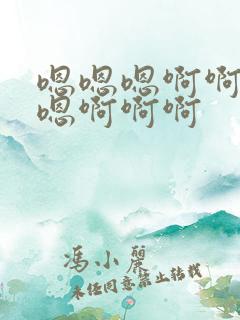 嗯嗯嗯啊啊
嗯啊啊啊
冯小丽
未经同意禁止转载